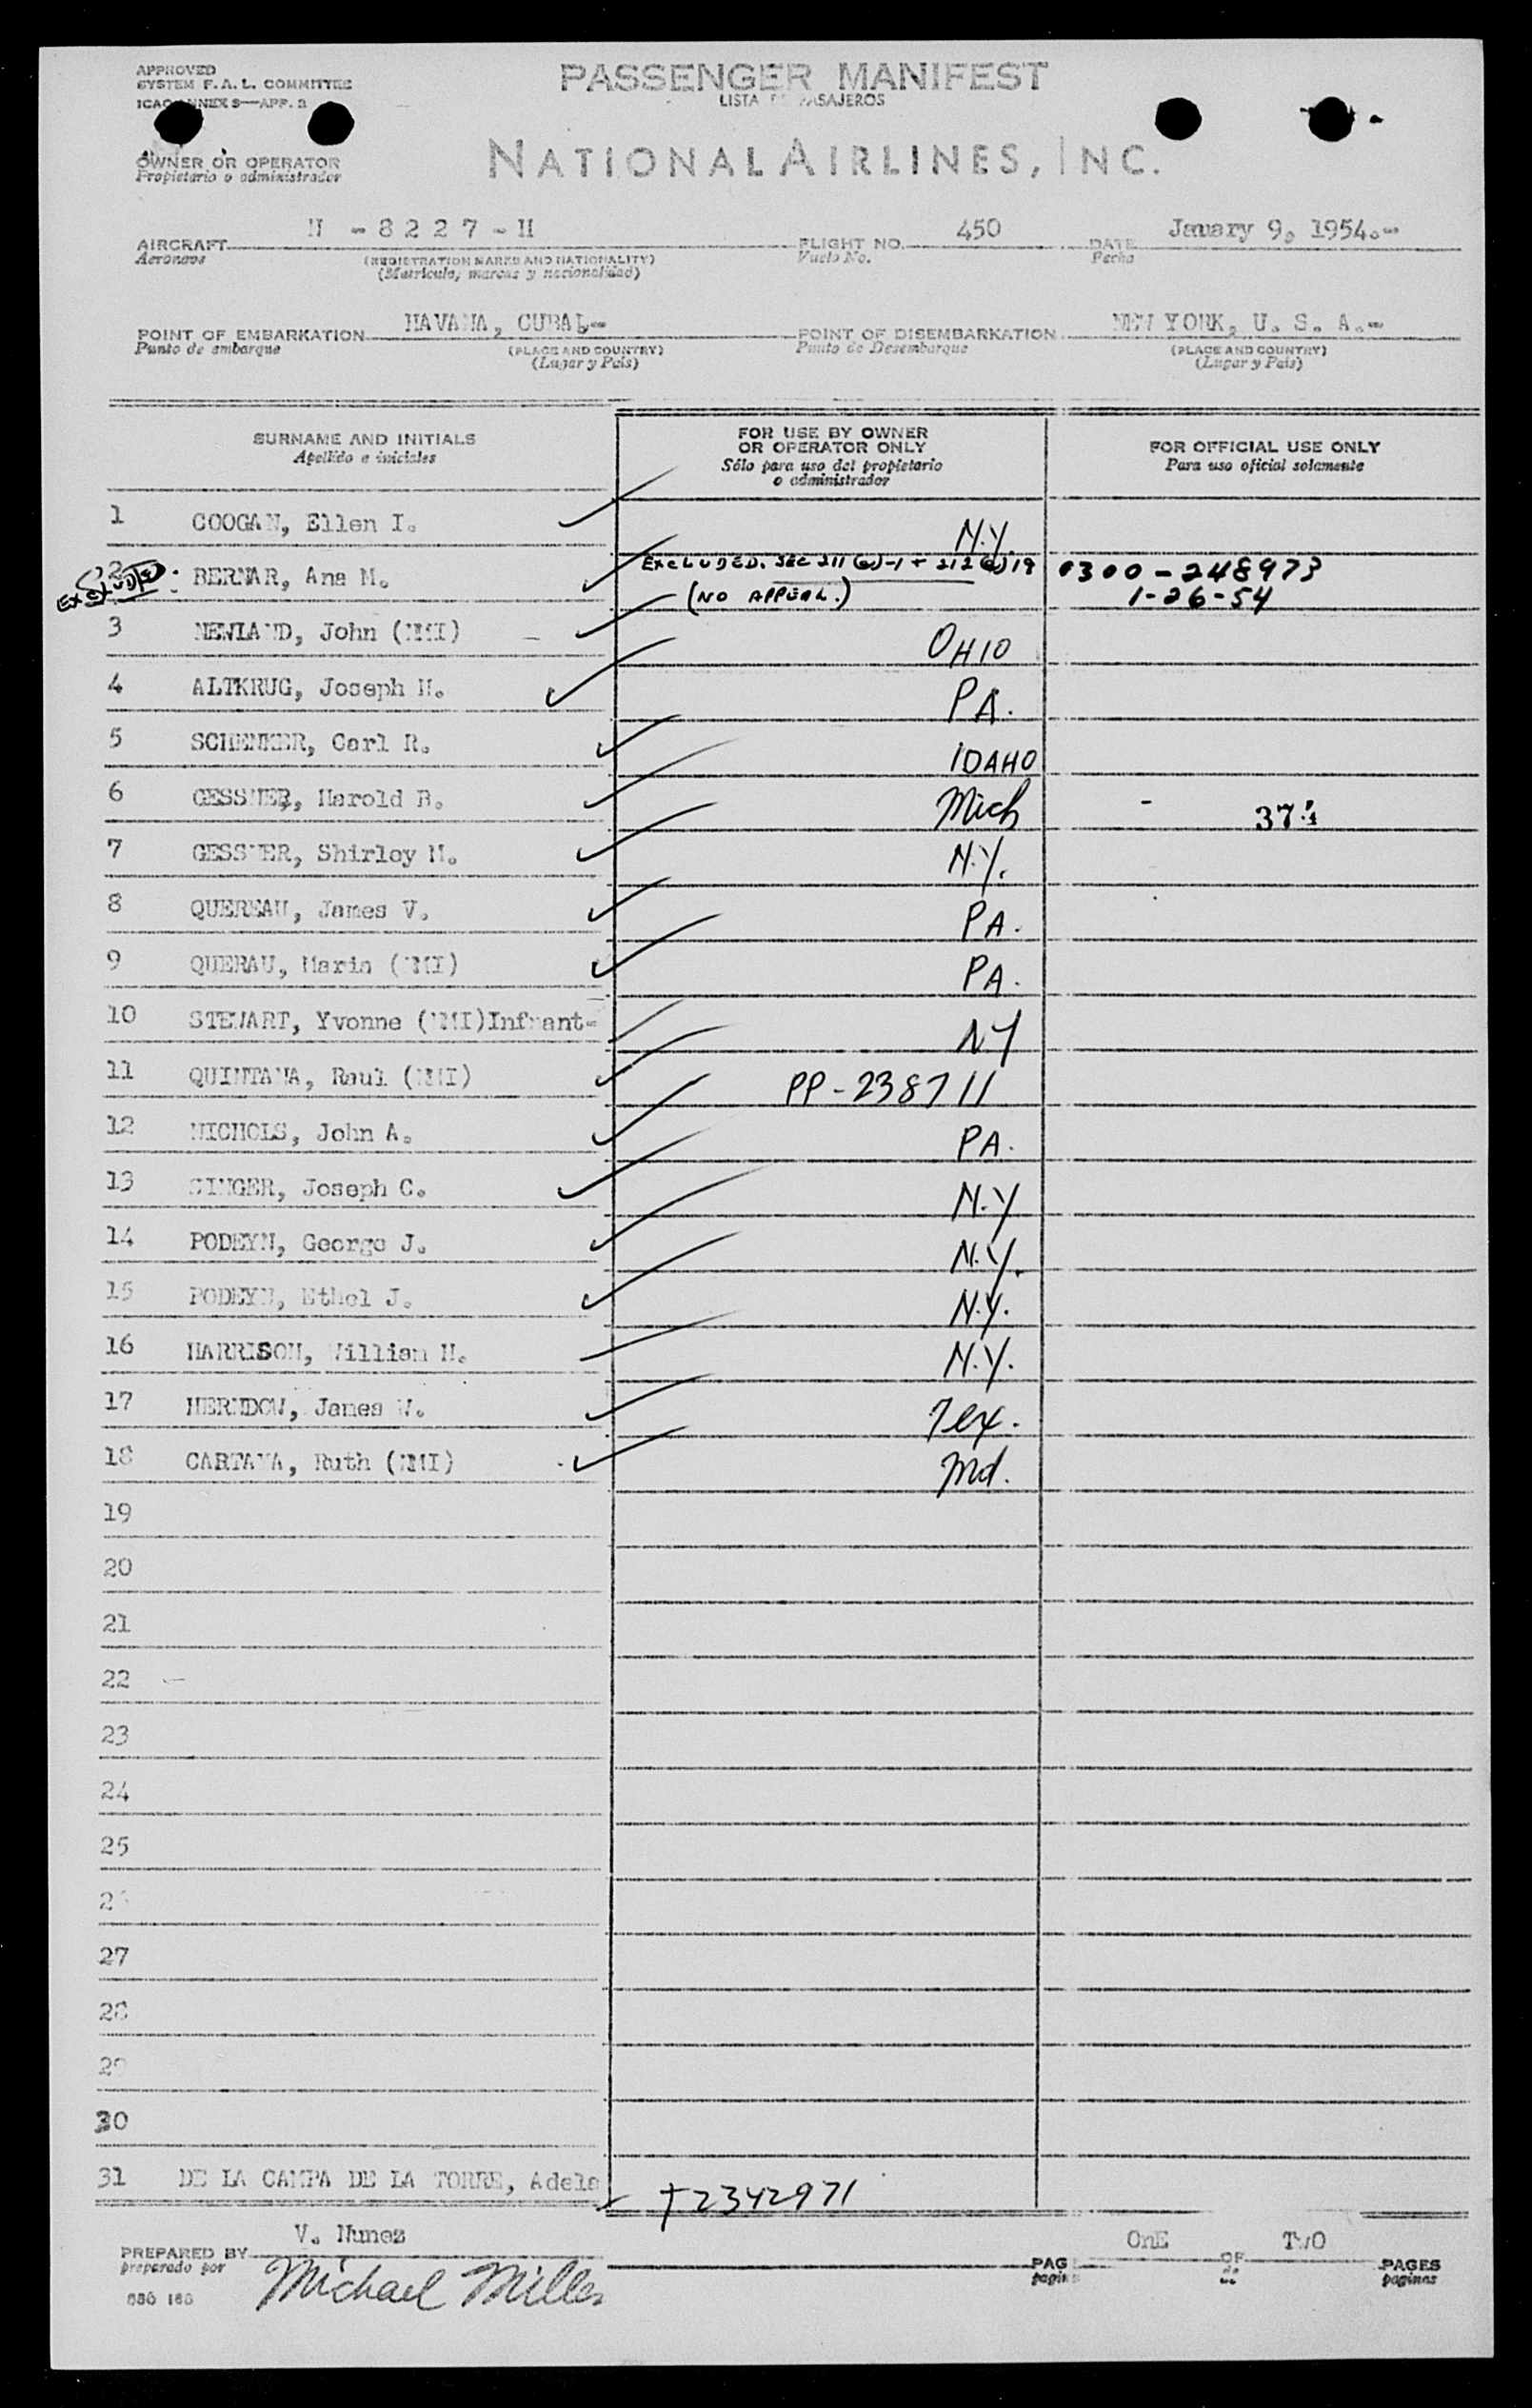 APPROVED
SYSTEM F.A.L. COMMITTEE
ICAO ANNEX 9—APP. 2
PASSENGER MANIFEST
LISTA DE PASAJEROS
OWNER OR OPERATOR
Propietario o administrador
NATIONAL AIRLINES, INC.
AIRCRAFT N - 8 2 2 7 - H FLIGHT NO. 450 DATE January 9, 1954.-
Aeronave (REGISTRATION MARKS AND NATIONALITY) Vuelo No. Fecha
(Matricula, marcas y nacionalidad)
POINT OF EMBARKATION HAVANA, CUBA.- POINT OF DISEMBARKATION NEW YORK, U. S. A.-
Punto de embarque (PLACE AND COUNTRY) Punto de Desembarque (PLACE AND COUNTRY)
(Lugar y Pais) (Lugar y Pais)
SURNAME AND INITIALS
Apellido e iniciales
FOR USE BY OWNER
OR OPERATOR ONLY
Sólo para uso del propietario
o administrador
FOR OFFICIAL USE ONLY
Para uso oficial solamente
1 COOGAN, Ellen I. N.Y.
EXCLUDED. 2 BERNAR, Ana M. EXCLUDED. SEC 211 (a)-1 + 212 (a) 19 0300-248973
(NO APPEAL.) 1-26-54
3 NEWLAND, John (NMI) OHIO
4 ALTKRUG, Joseph H. PA.
5 SCHENKER, Carl R. IDAHO
6 GESSNER, Harold B. Mich - 37
7 GESSNER, Shirley M. N.Y.
8 QUEREAU, James V. PA.
9 QUERAU, Maria (NMI) PA.
10 STEWART, Yvonne (NMI) Infant- NY
11 QUINTANA, Raul (NMI) PP-238711
12 NICHOLS, John A. PA.
13 SINGER, Joseph C. N.Y
14 PODEYN, George J. N.Y.
15 PODEYN, Ethel J. N.Y.
16 HARRISON, William H. N.Y.
17 HERNDOW, James W. Tex.
18 CARTAYA, Ruth (NMI) Md.
19
20
21
22
23
24
25
26
27
28
29
30
31 DE LA CAMPA DE LA TORRE, Adela T2342971
PREPARED BY V. Nunez PAGE OnE OF TwO PAGES
preparado por Michael Miller pagina de paginas